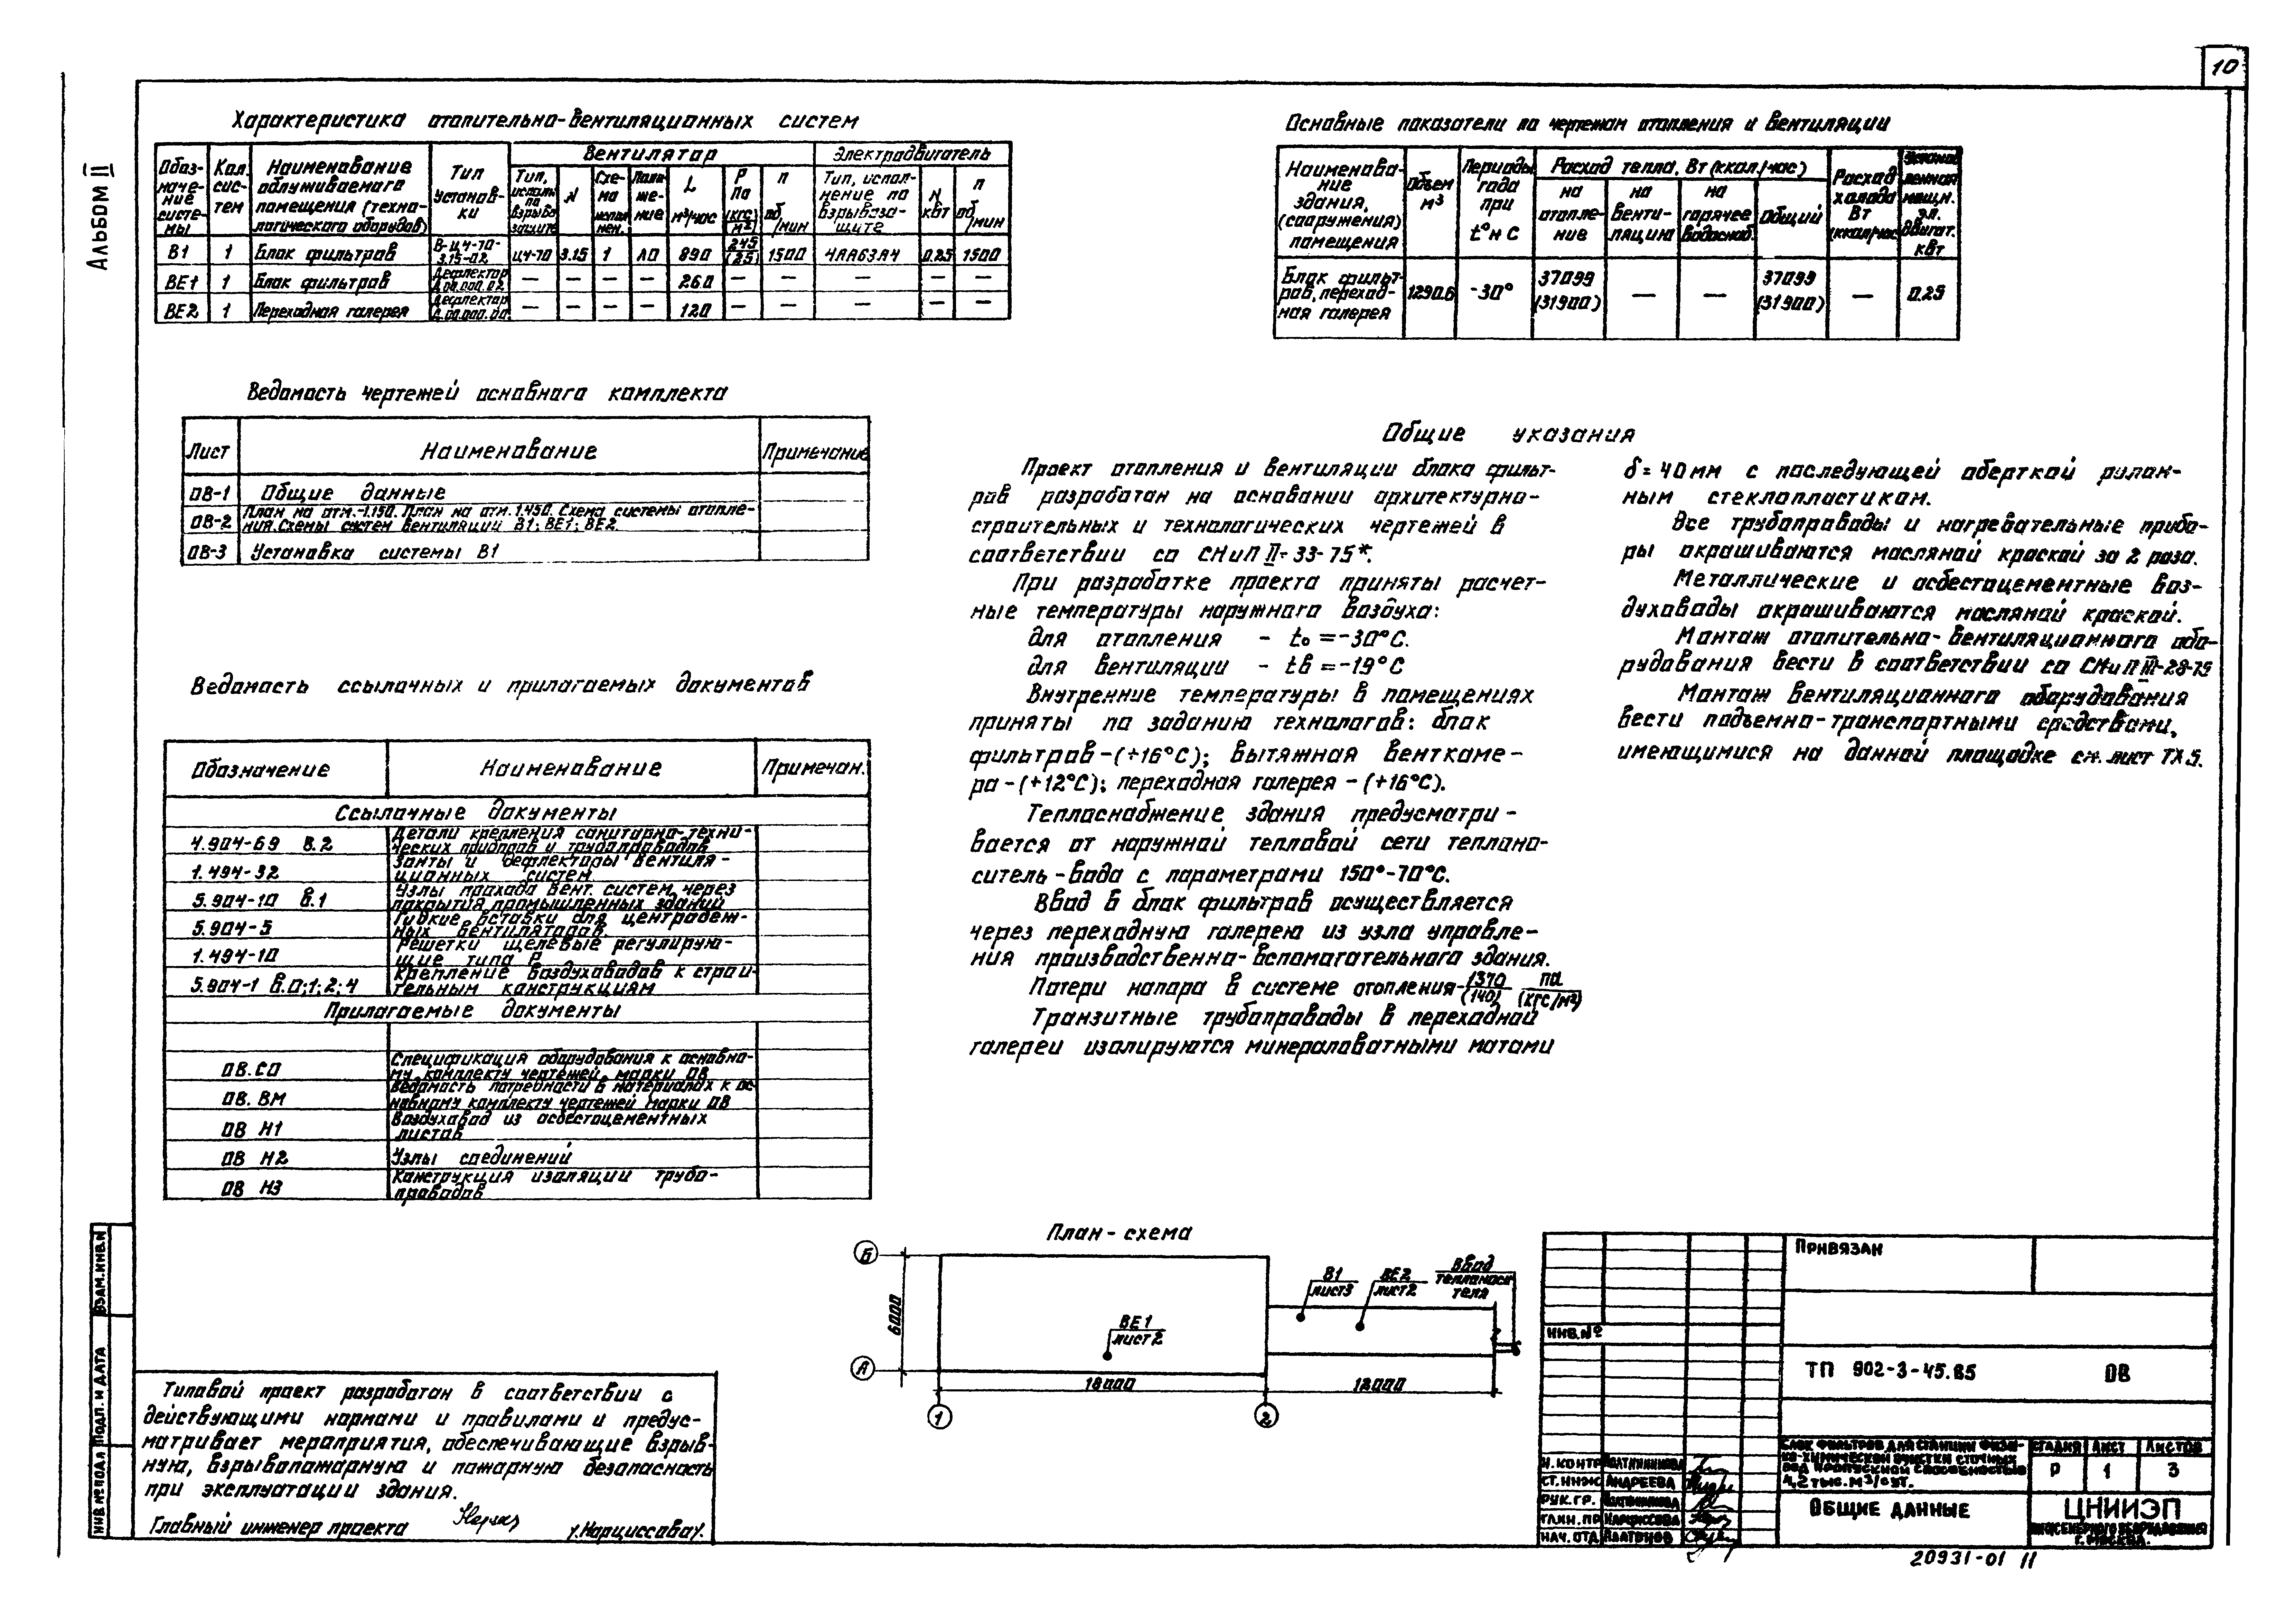 10
Альбом II
Характеристика отопительно-вентиляционных систем
Обоз-
наче-
ние
систе-
мы
Кол.
сис-
тем
Наименование
обслуживаемого
помещения (техно-
логического оборудов)
Тип
установ-
ки
Вентилятор
Тип,
исполн.
по
взрыво
защите
N
Схе-
ма
испол
нен.
Поло-
же-
ние
L
м³/час
P
Па
(кгс/м²)
n
об/мин
Электродвигатель
Тип, испол-
нение по
взрывоза-
щите
N
кВт
n
об/мин
В1 1 Блок фильтров В-Ц4-70-3.15-02 Ц4-70 3.15 1 Л0 890 245 (25) 1500 4АА63А4 0.25 1500
ВЕ1 1 Блок фильтров Дефлектор Д.00.000.02 — — — — 260 — — — — —
ВЕ2 1 Переходная галерея Дефлектор Д.00.000.00 — — — — 120 — — — — —
Основные показатели по чертежам отопления и вентиляции
Наименова-
ние
здания,
(сооружения)
помещения
Объем
м³
Периоды
года
при
t°н С
Расход тепла, Вт (ккал/час)
на
отопле-
ние
на
венти-
ляцию
на
горячее
водоснаб.
Общий
Расход
холода
Вт
(ккал/час
Установ
ленная
мощн.
эл.
двигат.
кВт
Блок фильт-
ров, переход-
ная галерея
1290.6 -30° 37099 (31900) — — 37099 (31900) — 0.25
Ведомость чертежей основного комплекта
Лист Наименование Примечание
ОВ-1 Общие данные
ОВ-2 План на отм.-1.150. План на отм. 1.450. Схема системы отопле-
ния. Схемы систем вентиляции В1; ВЕ1; ВЕ2.
ОВ-3 Установка системы В1
Ведомость ссылочных и прилагаемых документов
Обозначение Наименование Примечан.
Ссылочные документы
4.904-69 В.2 Детали крепления санитарно-техни-
ческих приборов и трубопроводов
1.494-32 Зонты и дефлекторы вентиля-
ционных систем
5.904-10 В.1 Узлы прохода вент. систем через
покрытия промышленных зданий
5.904-5 Гибкие вставки для центробеж-
ных вентиляторов.
1.494-10 Решетки щелевые регулирую-
щие типа Р
5.904-1 В.0;1;2;4 Крепление воздуховодов к строи
тельным конструкциям
Прилагаемые документы
ОВ.СО Спецификация оборудования к основно-
му комплекту чертежей марки ОВ
ОВ. ВМ Ведомость потребности в материалах к ос
новному комплекту чертежей марки ОВ
ОВ Н1 Воздуховод из асбестоцементных
листов
ОВ Н2 Узлы соединений
ОВ Н3 Конструкция изоляции трубо-
проводов
Общие указания
Проект отопления и вентиляции блока фильт-
ров разработан на основании архитектурно-
строительных и технологических чертежей в
соответствии со СНиП II-33-75*.
При разработке проекта приняты расчет-
ные температуры наружного воздуха:
для отопления - tо = -30°С.
для вентиляции - tв = -19°С
Внутренние температуры в помещениях
приняты по заданию технологов: блок
фильтров-(+16°С); вытяжная венткаме-
ра-(+12°С); переходная галерея - (+16°С).
Теплоснабжение здания предусматри-
вается от наружной тепловой сети теплоно-
ситель-вода с параметрами 150°-70°С.
Ввод в блок фильтров осуществляется
через переходную галерею из узла управле-
ния производственно-вспомогательного здания.
Потери напора в системе отопления-1370/(140) Па/(кгс/м²)
Транзитные трубопроводы в переходной
галереи изолируются минераловатными матами
δ = 40мм с последующей оберткой рулон-
ным стеклопластиком.
Все трубопроводы и нагревательные прибо-
ры окрашиваются масляной краской за 2 раза.
Металлические и асбестоцементные воз-
духоводы окрашиваются масляной краской.
Монтаж отопительно-вентиляционного обо-
рудования вести в соответствии со СНиП III-28-75
Монтаж вентиляционного оборудования
вести подъемно-транспортными средствами,
имеющимися на данной площадке см. лист ТХ5.
План-схема
Б
А
6000
ВЕ1
лист2
В1
лист3
ВЕ2
лист2
Ввод
теплоноси
теля
18000
12000
1
2
Типовой проект разработан в соответствии с
действующими нормами и правилами и предус-
матривает мероприятия, обеспечивающие взрыв-
ную, взрывопожарную и пожарную безопасность
при эксплуатации здания.
Главный инженер проекта /Нарциссова/.
Взам.инв.N
Подп. и дата
Инв № подл
Привязан
Инв.№
ТП 902-3-45.85 ОВ
Н.контр
Ст.инж Андреева
Рук.гр.
Гл.ин.пр Нарциссова
Нач.отд Платонов
Блок фильтров для станции физи-
ко-химической очистки сточных
вод пропускной способностью
4,2 тыс.м³/сут.
Стадия Лист Листов
Р 1 3
Общие данные
ЦНИИЭП
инженерного оборудования
г. Москва.
20931-01 11